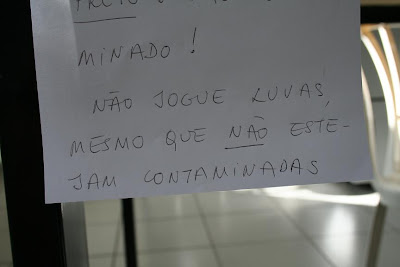 MINADO!
NÃO JOGUE LUVAS,
MESMO QUE NÃO ESTE-
JAM CONTAMINADAS